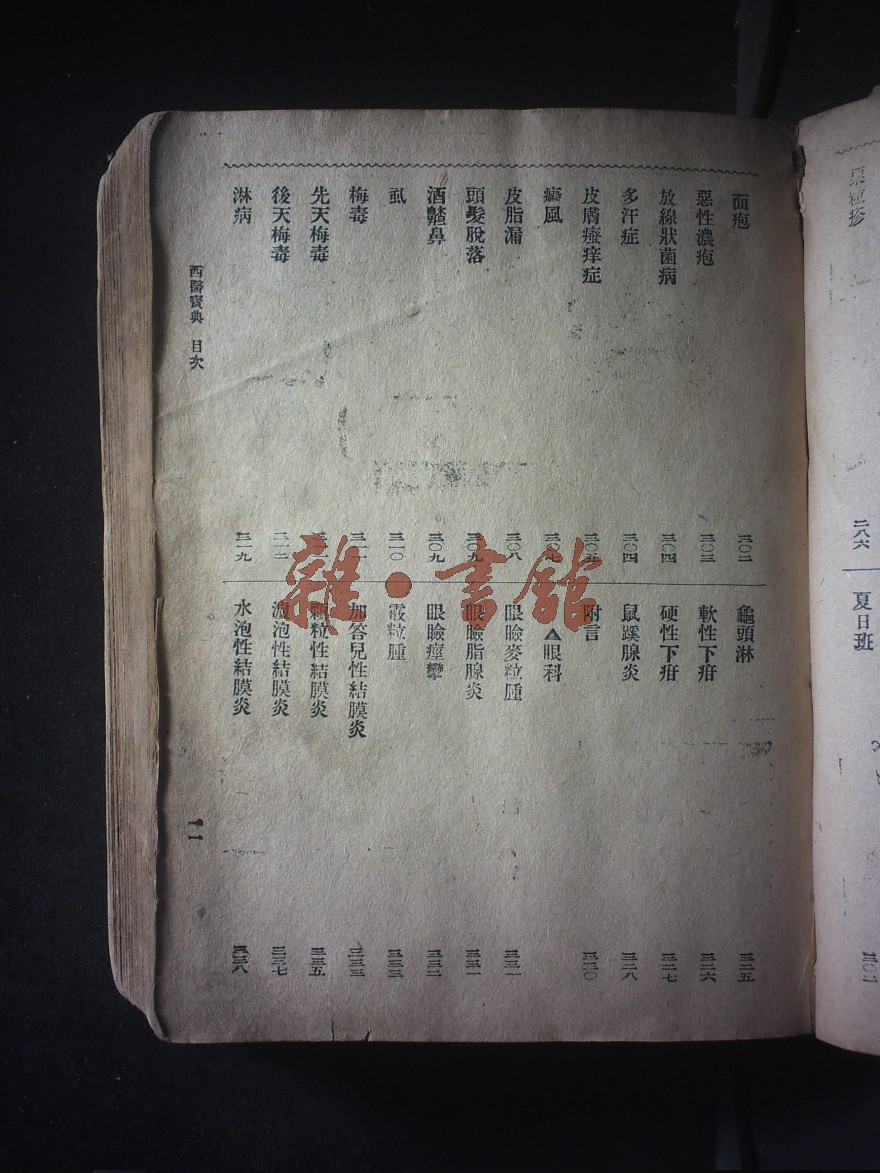 面疱 三〇二
惡性濃疱 三〇三
放線狀菌病 三〇四
多汗症 三〇四
皮膚瘙痒症 三〇五
癜風 三〇七
皮脂漏 三〇八
頭髮脫落 三〇九
酒齄鼻 三〇九
虱 三一〇
梅毒
先天梅毒
後天梅毒
淋病 三一九
龜頭淋 三二五
軟性下疳 三二六
硬性下疳 三二七
鼠蹊腺炎 三二八
附言 三三〇
▲眼科
眼瞼麥粒腫 三三一
眼瞼脂腺炎 三三一
眼瞼痙攣 三三二
霰粒腫 三三三
加答兒性結膜炎 三三三
顆粒性結膜炎 三三五
濾泡性結膜炎 三三七
水泡性結膜炎 三三八
西醫寶典 目次
一一
粟粒疹
二八六
夏日斑
三〇二
雜·書館